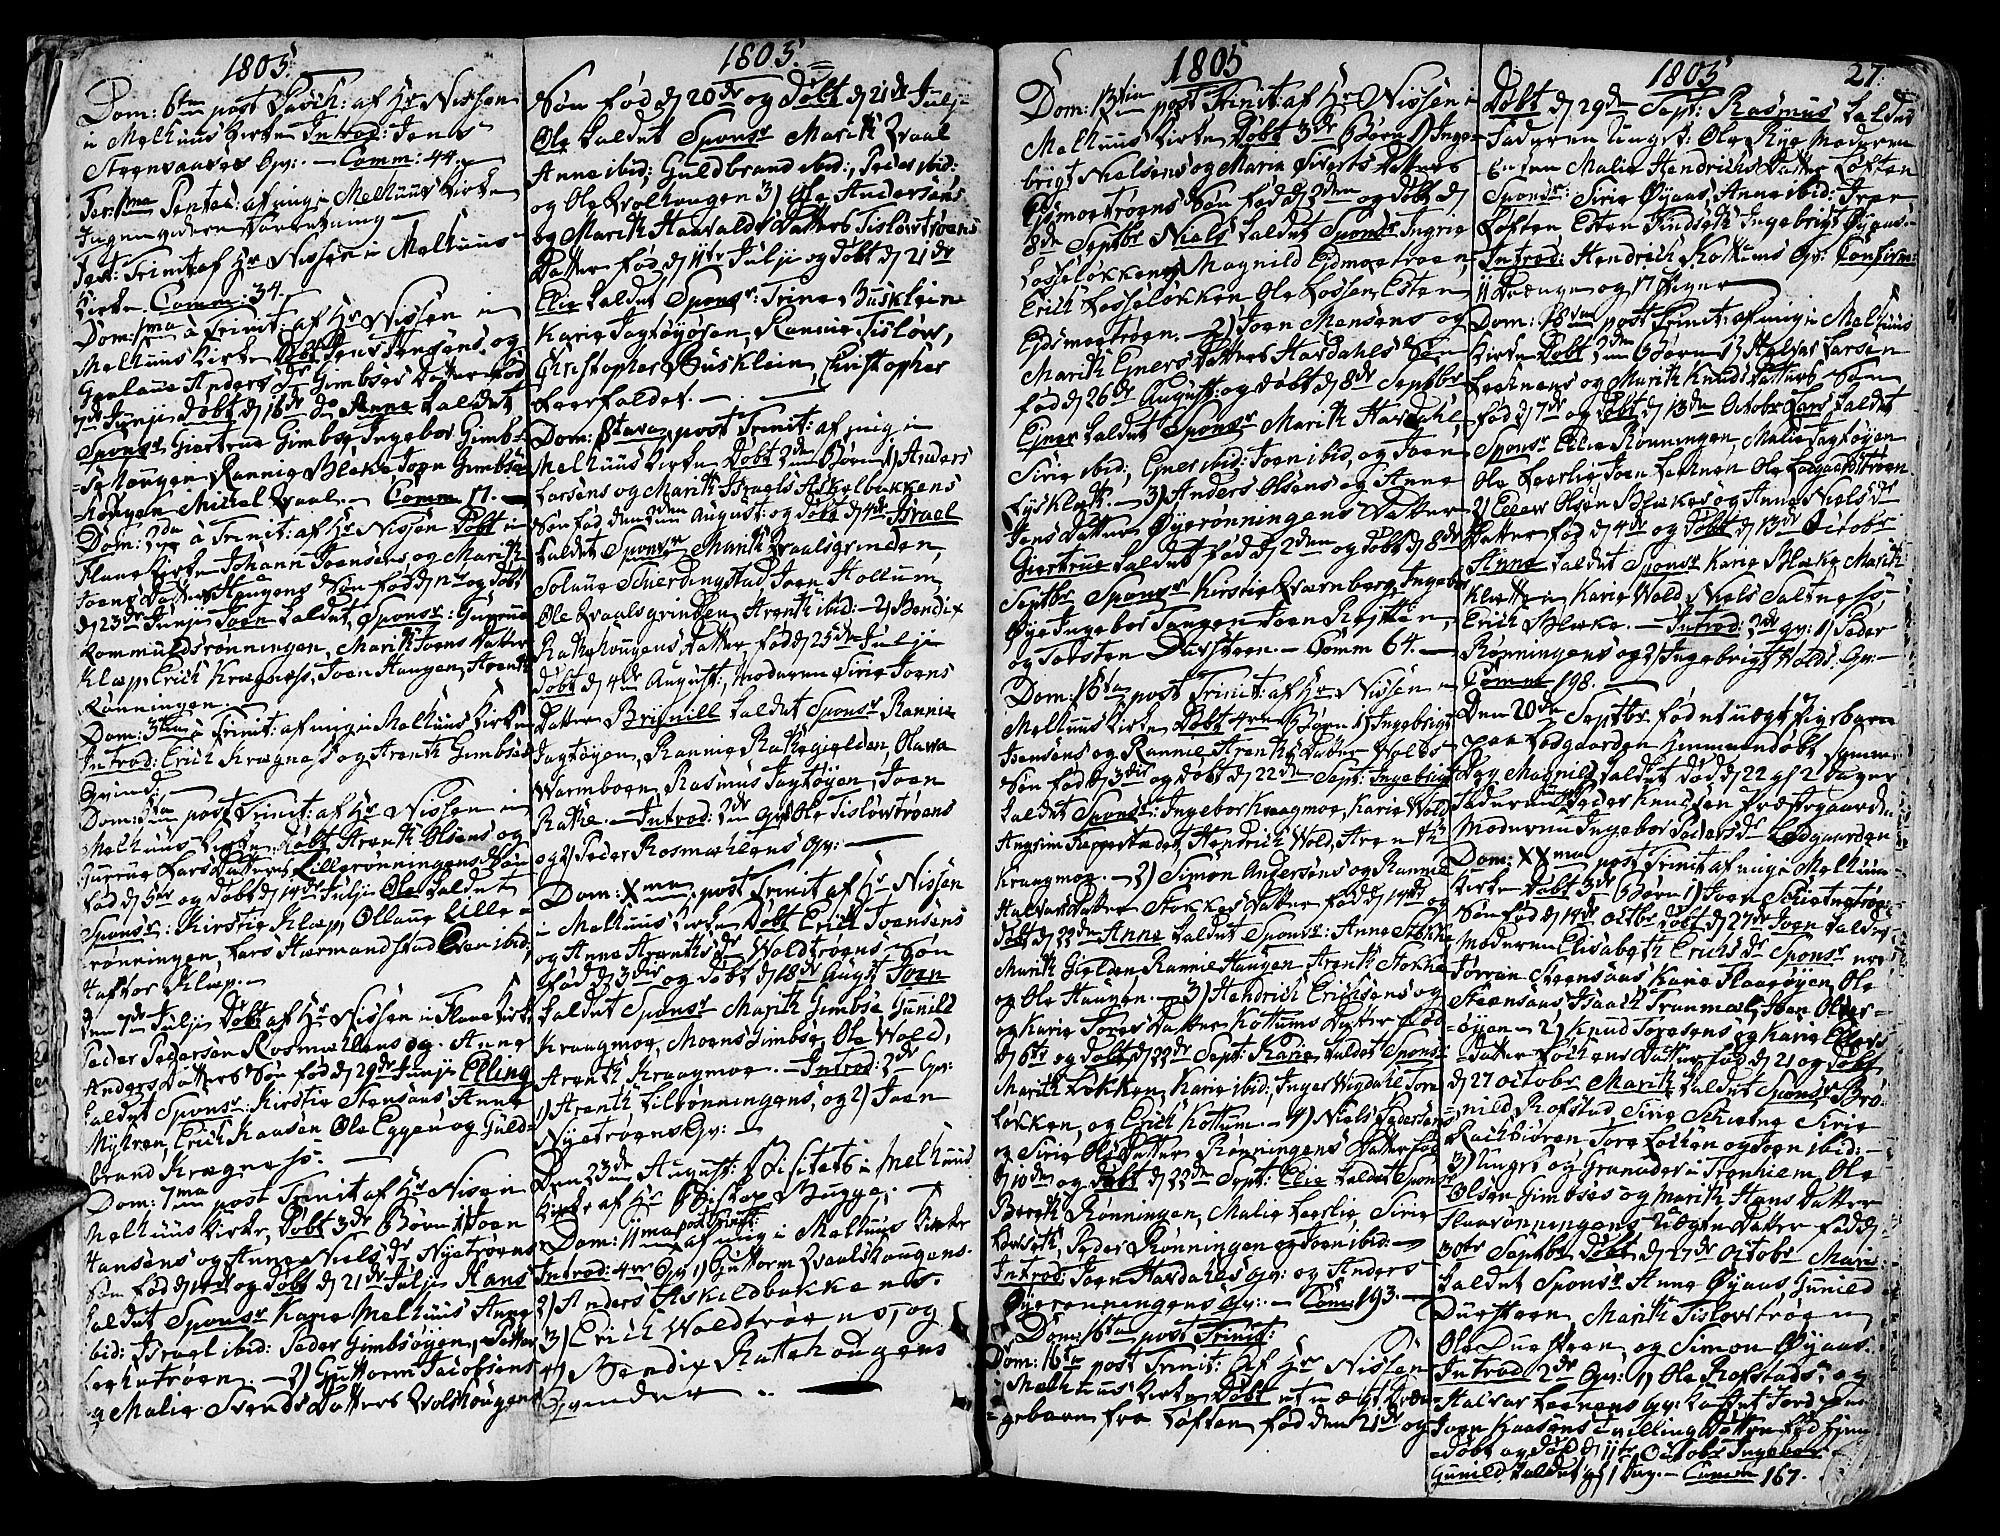 1805.
Dom: 6ta post Pasch: af Hr Nissen
i Melhuus Kirke Introd: Jens
Steensaases Qv: — Comm: 44.
Fer: 1ma Pentec: af mig i Melhuus Kirke
Ingen videre Forretning
Fest: Trinit af Hr Nissen i Melhuus
Kirke Comm: 34.
Dom: 1ma a Trinit: af Hr Nissen i
Melhuus Kirke Døbt Jens Jensens og
Anders dr Gimbses Datter fød
7de Junji døbt d 16de do Anne kaldet
Spons: Giertrue Gimbse Ingebor Gimbs-
Rannie Bleke Joen Gimbse
Michel Qvaal. Comm 17.
Dom: 2da a Trinit: af Hr Nissen Døbt i
Flaae Kirke Johann Joensens og Marith
Joens Datter Haugens Søn fød d og døbt
d 23de Junji Joen kaldet, Spons: Gurrue
Rommuldsrønningen, Marith Joens Datter
Klæp, Erich Kregnæs, Joen Haugen, Arenth
Rønningen.
Dom: 3tia a Trinit: af mig i Melhuus Kirke
Introd: Erich Kregnæs og Arenth Gimbses
Qvind:
Dom: 5ta post Trinit: af Hr Nissen i
Melhuus Kirke Døbt Arenth Olsens og
Gurrue Lars Datters Lillerønningens Søn
fød d 5te og døbt d 14de Julji Ole kaldet
Spons: Kirstie Klæp Ollaue Lille-
rønningen, Lars Hermandstad Even ibid,
Halvor Klæp.
Den 7de Julji Døbt af Hr Nissen i Flaae Kirke
Peder Pedersen Rosmælens og Anne
Anders Datters Søn fød d 29de Junji Elling
kaldet Spons: Kirstie Stensaas Anne
Myhren, Erich Kaasen Ole Eggen og Guld-
brand Kregnæss.
Dom: 7ma post Trinit af Hr Nisen i
Melhuus Kirke, Døbt 3de Børn 1) Joen
Hansens og Anne Niels dr Nyetrøens
Søn fød d 14de og døbt d 21de Julji Hans
kaldet Spons: Karie Melhuus Anne
ibid: Israel ibid: Peder Gimbsøyen, Petter
Leehntrøen. 2) Guttorm Jacobsens
og Malie Svends Datters Qvolshougens
1805.
Søn fød d 20de og Døbt d 21de Julji
Ole kaldet Spons: Marith Qvaal
Anne ibid; Guldbrand ibid:, Peder ibid:
og Ole Qvolhougen 3) Ole Andersens
og Marith Haavalds Datters Tisløwtrøens
Datter fød d 11te Julji og døbt d 21de
Elie kaldet Spons: Trine Busklein
Karie Jagtøyosen, Rannie Tisløw,
Christopher Busklein, Christopher
Leerfaldet.
Dom: 8tava post Trinit: af mig i
Melhuus Kirke Døbt 2de Børn 1) Anders
Larsens og Marith Israels Askelbakkens
Søn fød den 2den August: og døbt d 4de Israel
kaldet Spons: Marith Qvaalsgrinden,
Solaue Schierdingstad Joen Hollum
Ole Qvaalsgrinden Arenth ibid: 2) Bendix
Rattehougens Datter fød d 25de Julji
døbt d 4de August:, moderen Sirie Joens
Datter Brignill kaldet Spons: Rannie
Jagtøyen, Rannie Rattegielden, Olava
Varmboen, Rasmus Jagtøyen, Joen
Ratte. Introd: 2de Qv: Ole Tisløwtrøens
og 2) Peder Rosmælens Qv:
Dom: Xma post Trinit af Hr Nissen
i Melhuus Kirke Døbt Erich Joensens
og Anne Arenths dr Woldtrøens Søn
fød d 3de og døbt d 18de Augst Joen
kaldet Spons: Marith Gimbse, Gunild
Kraagmoe, Moens Gimbse, Ole Wold,
Arenth Kraagmoe. Introd: 2de Qv:
1) Arenth Lilrønningens, og 2) Joen
Nyetrøens Qv:
Den 23de August: Visitats i Melhuus
Kirke af Hr Biskop Bugge.
Dom: 11ma post Trinit: af mig i Melhuus Kirke
Introd: 4re Qv 1) Guttorm Qvaalshougens.
2) Anders Askildbakkens.
3) Erich Woldtrøens, og
4) Bendix Rattehougens
Qvinder.
1805
Dom: 13tia post Trinit: af Hr Nissen i
Melhuus Kirke Døbt 3de Børn 1) Inge-
brigt Nielsens og Maria Siverts Datters
Ejdsmoetrøens Søn fød d 2den og døbt d
8de Septbr Niels kaldet Spons: Ingrie
Losseløkken, Magnild Ejdsmoetrøen,
Erich Losseløkken Ole Lossen, Esten
Ejdsmoetrøen. 2) Joen Monsens og
Marith Ejners Datters Hardahls Søn
fød d 26de August: og døbt d 8de Septbr
Ejner kaldet Spons: Marith Hardahl,
Sirie ibid; Ejner ibid: Joen ibid, og Joen
Lyskleth. 3) Anders Olsens og Anne
Jens Datters Øyerønningens Datter
Giertrue kaldet fød d 2den og døbt d 8de
Septbr Spons: Kirstie Qvernberg, Ingebor
Øye Ingebor Tangen Joen
og Torsten Dahlsteen. Comm 64.
Dom: 15ta post Trinit: af Hr Nissen i
Melhuus Kirke Døbt 4re Børn 1) Ingebrigt
Joensens og Rannie Arenths Datter Volds
Søn fød d 3de og døbt d 22de Sept: Ingebrigt
kaldet Spons: Ingebor Kraagmoe, Karie Wold
Angsim Reppestædet, Hendrich Wold, Arenth
Kraagmoe. 2) Simon Andersens og Rannie
Halvors Datter Stokkes Datter fød d 14de og
døbt d 22de Anne kaldet Spons: Anne Stokke
Marith Gielden Rannie Haugen Arenth Stokke
og Ole Haugen. 3) Hendrich Erichsens og
og Karie Tores Datter Kottums Datter fød
d 6te og døbt d 22de Sept: Karie kaldet Spons:
Marith Løkken, Karie ibid:, Inger Wigdahl Torn
Løkken, og Erich Kottum. 4) Niels Pedersens
og Sirie Ols Datter Rønningens Datter fød
d 10de og døbt d 22de Sept: Elie kaldet Spons:
Bereth Rønningen, Malie Leerlie, Sirie
Loeseth, Peder Rønningen og Joen ibid:
Introd: Joen Hardahls Qv: og Anders
Øyerønningens Qv: Com: 193.
Dom: 16ta post Trinit:
Dom: 16te post Trinit: af Hr Nissen
i Melhuus Kirke Døbt et uægt Drenge-
gebarn fra Løften fød den 21de og
1805 27.
Døbt d 29de Sept: Rasmus kaldet
Faderen Ungk: Ole Rye Moderen
Malie Hendrichs Datter Løften
Spons: Sirie Øyaas, Anne ibid: Iver
Løften Esten Findseth Ingebrigt Øyaas
Introd: Hendrich Kottums Qv: Confirm:
11 Drænge og 17 Piger
Dom: 18va post Trinit: af mig i Melhuus
Kirke Døbt 2de Børn 1) Halvor Larsens
Leehnens og Marith Knuds Datters Søn
fød d 7de og døbt d 13de Octobr Lars kaldet
Spons: Elie Rønningen, Malie Jagtøyen
Ole Leerlie Joen Leehnen Ole Lodgaardstrøen
2) Ellew Olsen Blekes og Anne Niels dr
Datter fød d 4de og Døbt d 13de Octobr
Anne kaldet Spons: Karie Bleke, Marith
Kletten, Karie Wold Niels Saltnes,
Erich Bleke. Introd: 2de Qv: 1) Peder
Rønningens og 2) Ingebrigt Wolds Qv:
Comm 198.
Den 20de Septbr fød et uægt Pigebarn
paa Lodgaarden Hjemmedøbt samme
Dag Magnild kaldet død d 22 gl 2 Dager
Faderen Peder Knudsen Præstegaarden
Moderen Ingebor Peders dr Lodgaarden
Dom: XXma post Trinit af mig i Melhuus
Kirke Døbt 3de Børn 1) Joen Schietnetrøens
Søn fød d 14de Octbr døbt d 27de Joen kaldet
Moderen Elisabeth Erichs dr Spons: ere
Jørran Steensaas Karie Flaaøyen Ole
Steensaas Isaach Tranmæl, Joen Older-
øyen 2) Knud Toresens og Karie Ellefs
Datter Løchens Datter fød d 21 og døbt
d 27 Octobr Marith kaldet Spons: Brø-
nild Rofstad, Sirie Schietne Sirie
Rachbiøren Tore Løchen og Joen ibid:
3) Ungk: og Granadeer i Tronhiem, Ole
Olsen Gimbses og Marith Hans Datter
Flaarønningens Uægte Datter fød d
30te Septbr Døbt d 27de Octobr Marie
kaldet Spons: Anne Øyaas, Gunild
Duesteen, Marith Tisløwtrøen
Ole Duesteen og Simon Øyaas.
Introd 2de Qv: 1) Ole Rofstads, og
Halvor Leenens Qv: Kastet Jord paa
Joen Kaasens Tvilling Døttre fød hjem-
medøbt og død d 11te Octobr Ingebor
Gunild kaldet gl 1 Dag. Comm 167.